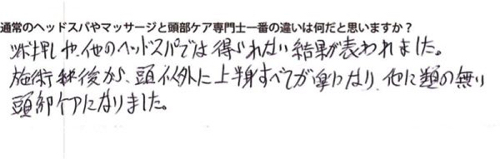 通常のヘッドスパやマッサージと頭部ケア専門士一番の違いは何だと思いますか？
ツボ押しや、他のヘッドスパでは得られない結果が表われました。
施術後から、頭以外に上半身すべてが楽になり、他に類の無い
頭部ケアになりました。